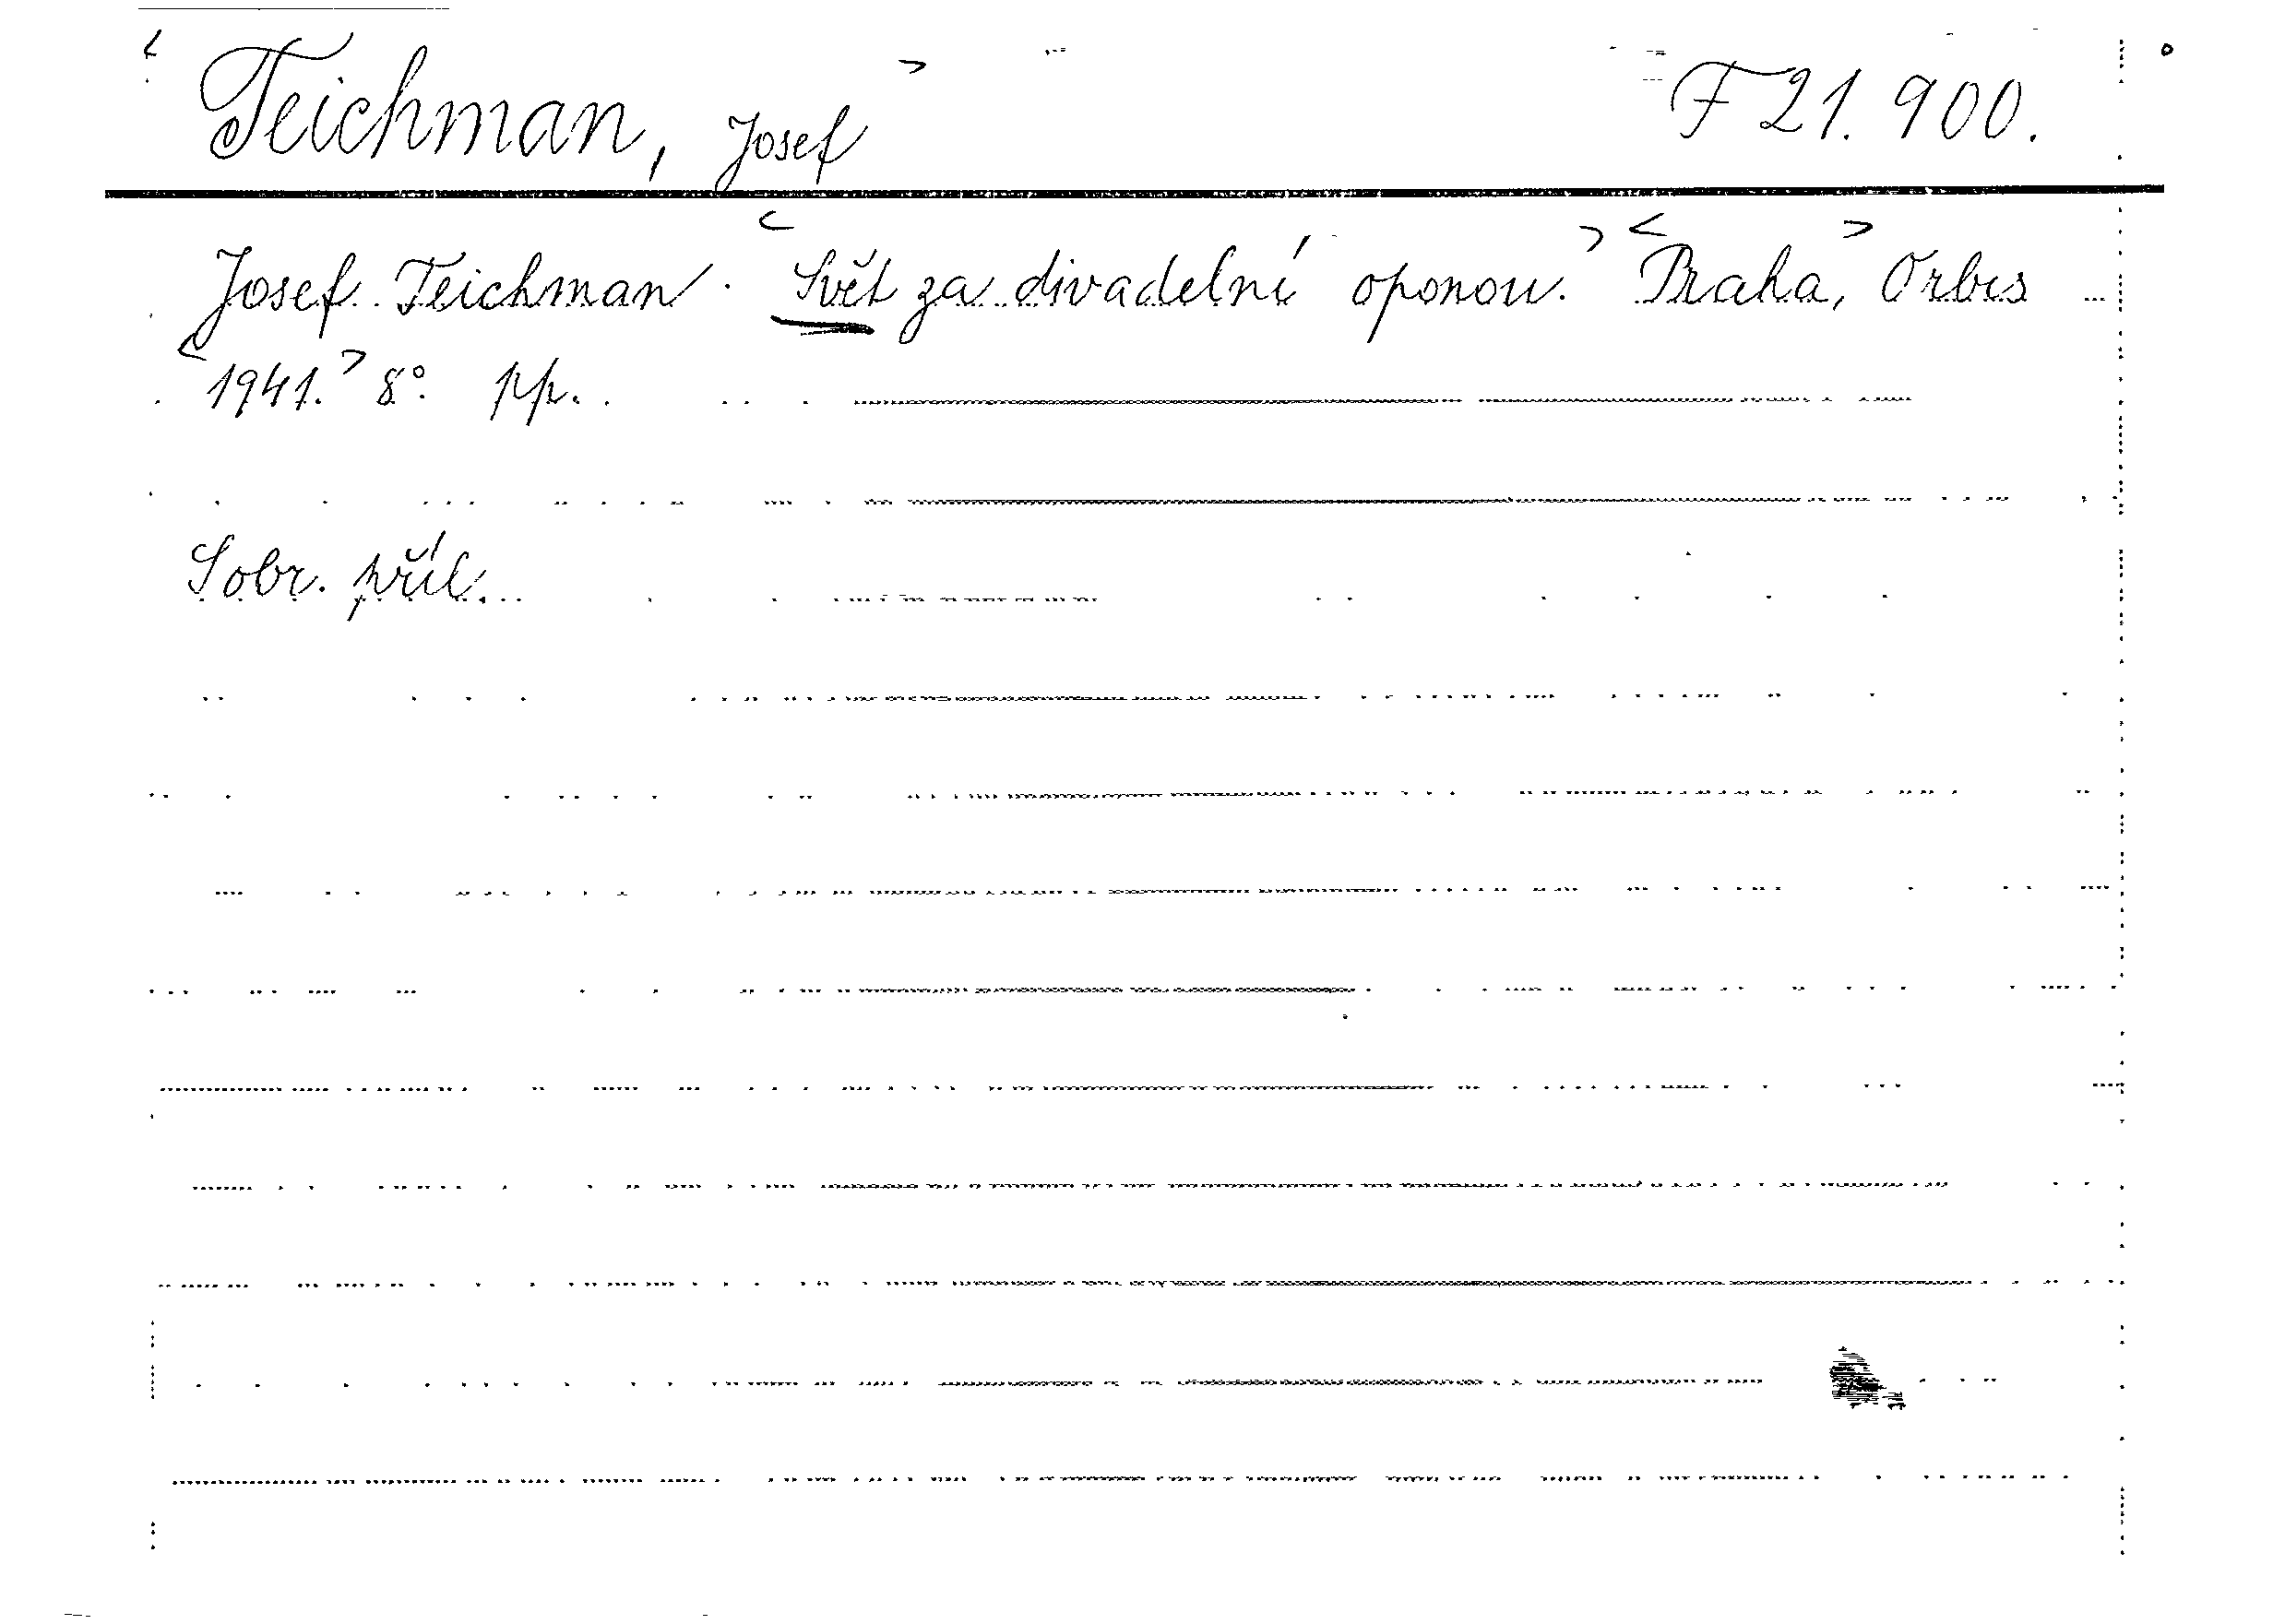 Teichman, Josef F 21. 900.
Josef Teichman. Svět za divadelní oponou. Praha, Orbis
1941. 8°. pp.
S obr. příl.